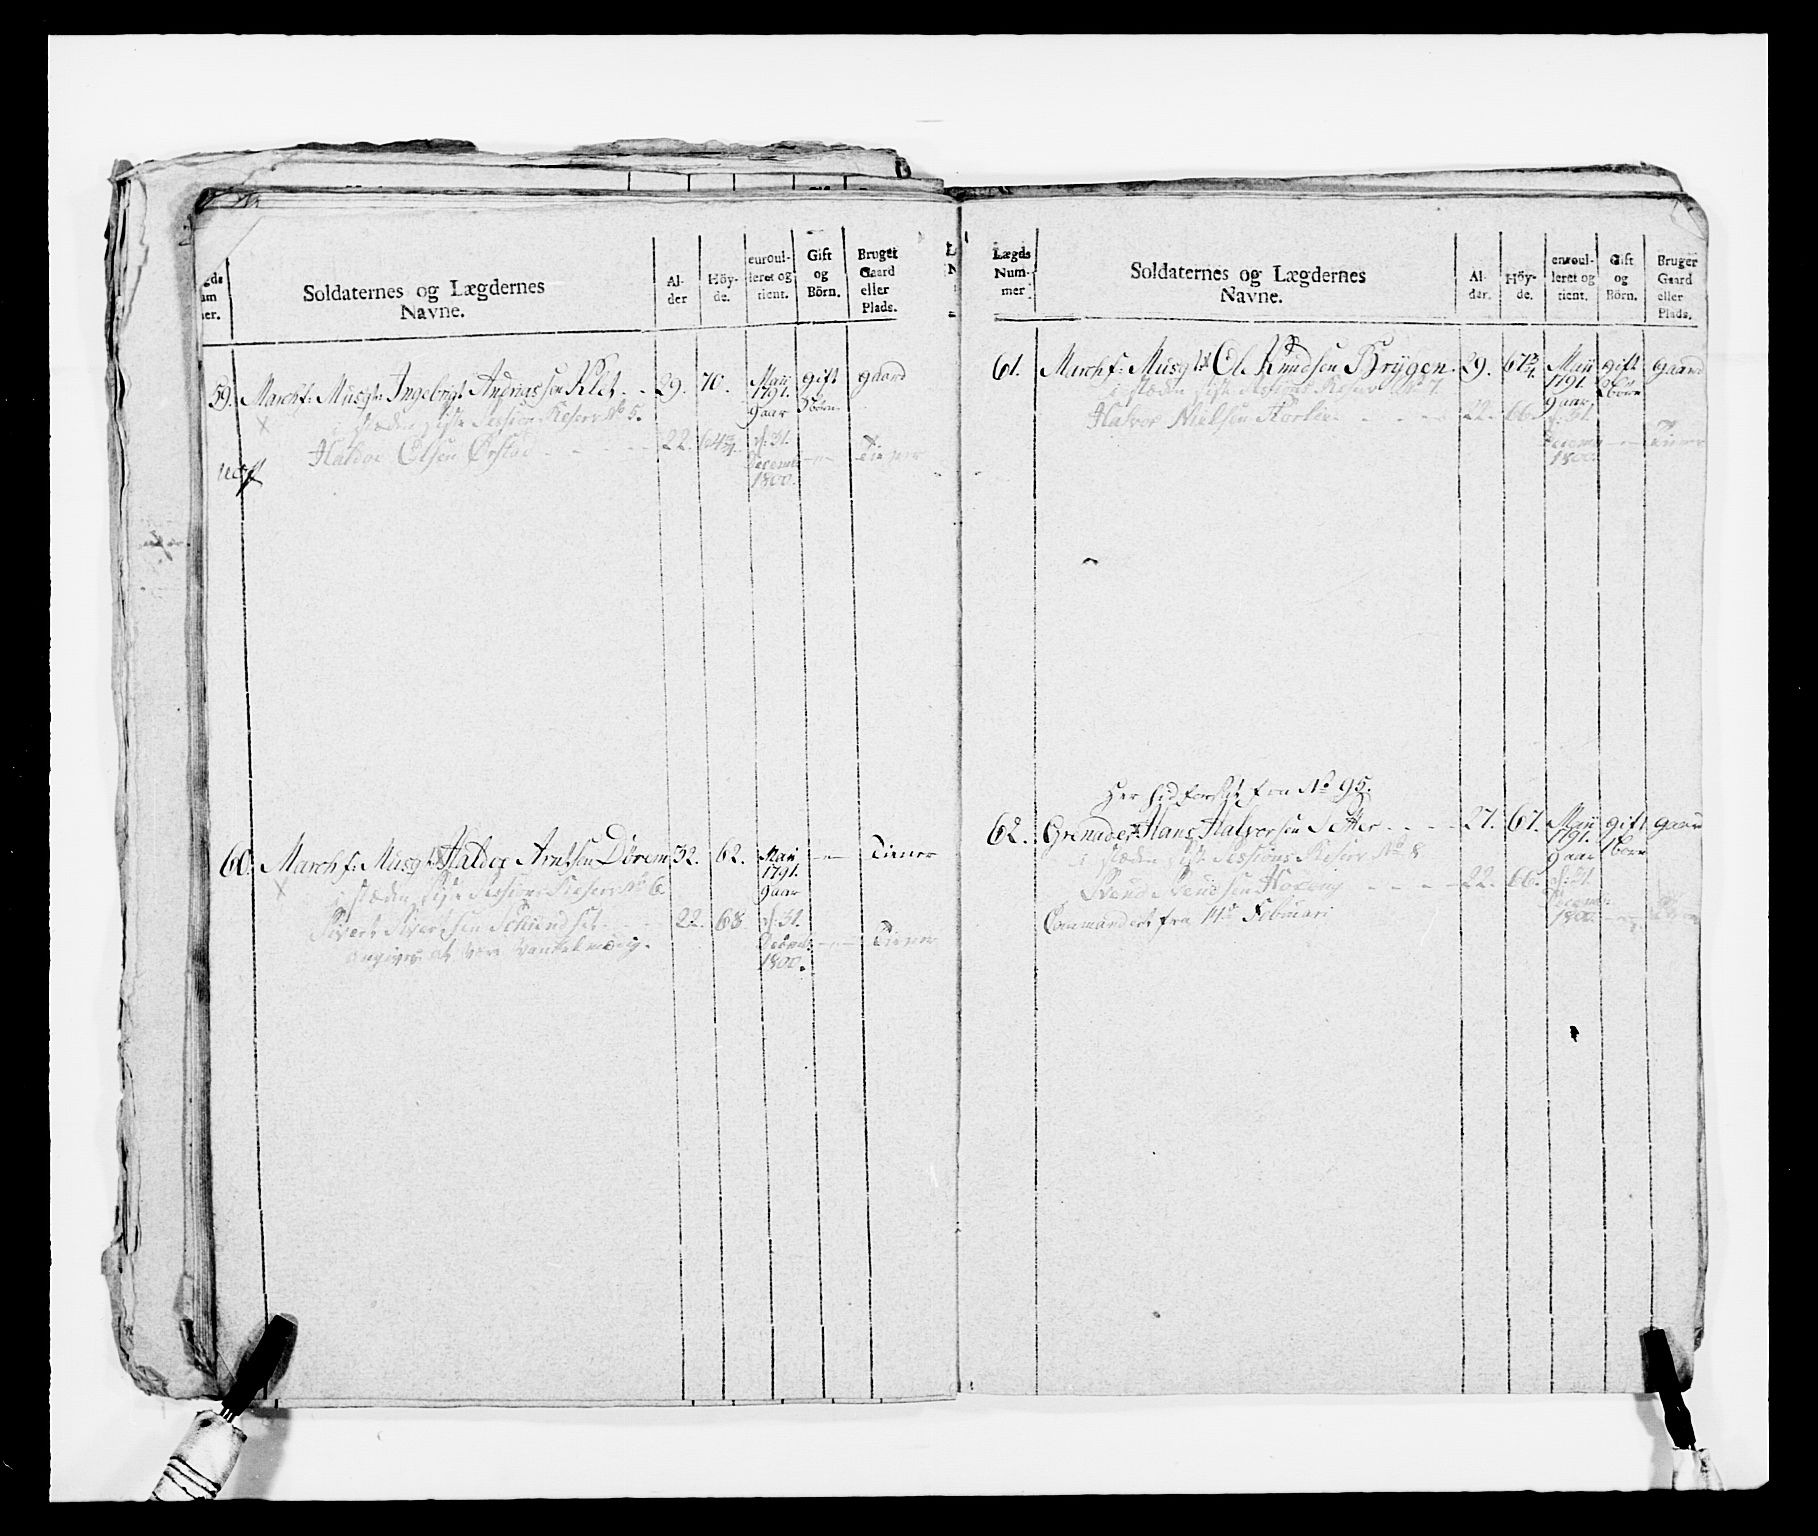 Soldaternes og Lægdernes
Navne.
Al-
der
Höy-
de.
enroul-
leret og
tient.
Gift
og
Börn.
Bruget
Gaard
eller
Plads.
59. Marchf: Musqt: Ingebrigt Andreassen Klet 29. 70. Maii 1791. 9 aar gift 3 börn gaard
i stæden siste Sessions Reserv No 5.
Haldoe Olsen Ørstad 22. 64 3/4 d: 31. Decemb 1800. Tiener
60. Marchf: Musqt Haldoe Arntsen Dørem 32. 62. Maii 1791. 9 aar Tiener
i stæden siste Sessions Reserv No 6
Sivert Sivertsen 22. 68 d: 31. 1800. Tiener
angives at være
Lægds
Num-
mer
Soldaternes og Lægdernes
Navne.
Al-
der.
Höy-
de.
enroul-
leret og
tient.
Gift
og
Börn.
Bruger
Gaard
eller
Plads.
61. Marchf: Musqt Ole Knudsen Brÿgen 29. 67 3/4 Maii 1791. 9 aar gift börn gaard
i stæden siste Sessions Reserv No 7.
Halvor Nielsen 22. 66 d: 31. Decemb 1800. Tiener
Her hid forsat fra No 95.
62. Grenader Hans Halvorsen Setter 27. 67. Maii 1791. 9 aar gift 1 börn gaard
i stæden siste Sessions Reserv No 8
22. 66. d: 31. Decemb 1800.
Commanderet fra 14de Februari